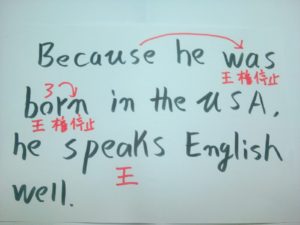 Because he was
王権停止
3
born in the USA,
王権停止
he speaks English
王
well.